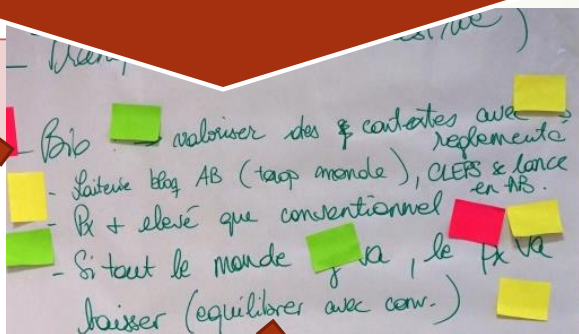 - Bio → valoriser des contextes avec
reglementé
- Laiterie bloq AB (trop monde), CLEPS se lance
en AB.
- Px + elevé que conventionnel
- Si tout le monde y va, le px va
baisser (equilibrer avec conv.)